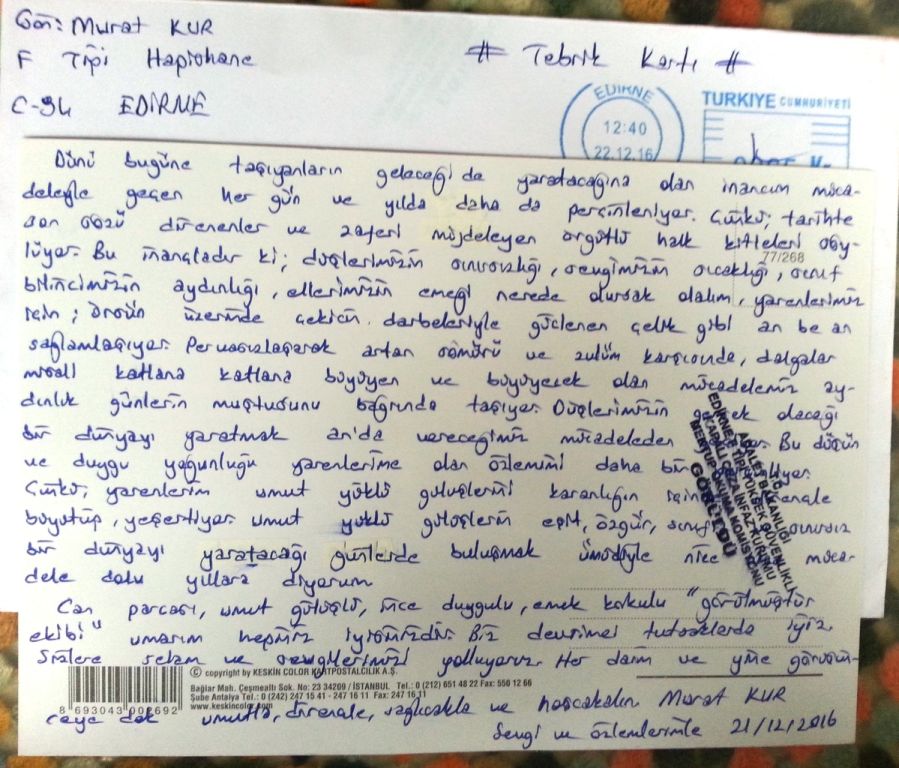 Gön: Murat KUR
F Tipi Hapishane
C-94 EDİRNE
# Tebrik Kartı #
EDİRNE
12:40
22.12.16
TURKIYE CUMHURİYETİ
Dünü bugüne taşıyanların geleceği de yaratacağına olan inancım müca-
deleyle geçen her gün ve yılda daha da perçinleniyor. Çünkü; tarihte
son sözü direnenler ve zaferi müjdeleyen örgütlü halk kitleleri söy-
lüyor. Bu inançladır ki; düşlerimizin sınırsızlığı, sevgimizin sıcaklığı, sınıf
77/268
bilincimizin aydınlığı, ellerimizin emeği nerede olursak olalım, yarenlerimiz
için; örsün üzerinde çekicin darbeleriyle güçlenen çelik gibi an be an
sağlamlaşıyor. Pervasızlaşarak artan sömürü ve zulüm karşısında, dalgalar
misali katlana katlana büyüyen ve büyüyecek olan mücadelemiz ay-
dınlık günlerin muştusunu bağrında taşıyor. Düşlerimizin gerçek olacağı
bir dünyayı yaratmak an'da vereceğimiz mücadeleden Bu düşün
ve duygu yoğunluğu yarenlerime olan özlemimi daha bir
Çünkü; yarenlerim umut yüklü gülüşlerini karanlığın için
büyütüp, yeşertiyor. Umut yüklü gülüşlerin eşit, özgür, sınıfsız sınırsız
bir dünyayı yaratacağı günlerde buluşmak ümidiyle nice müca-
dele dolu yıllara diyorum
Can parçası, umut gülüşlü, ince duygulu, emek kokulu "görülmüştür
ekibi" umarım hepiniz iyisinizdir. Biz devrimci tutsaklarda iyiz.
Sizlere selam ve sevgilerimizi yolluyoruz. Her daim ve yine görüşün-
ceye dek umutla, dirençle, sağlıcakla ve hoşçakalın. Murat KUR
Sevgi ve özlemlerimle 21/12/2016
T.C.
ADALET BAKANLIĞI
EDİRNE F TİPİ YÜKSEK GÜVENLİKLİ
KAPALI CEZA İNFAZ KURUMU
MEKTUP OKUMA KOMİSYONU
GÖRÜLDÜ
© copyright by KESKİN COLOR KARTPOSTALCILIK A.Ş.
Bağlar Mah. Çeşmealtı Sok. No: 23 34209 / İSTANBUL Tel.: 0 (212) 651 48 22 Fax: 550 12 66
Sube Antalya Tel.: 0 (242) 247 15 41 - 247 16 11 Fax: 247 16 11
www.keskincolor.com
8 693043 002692